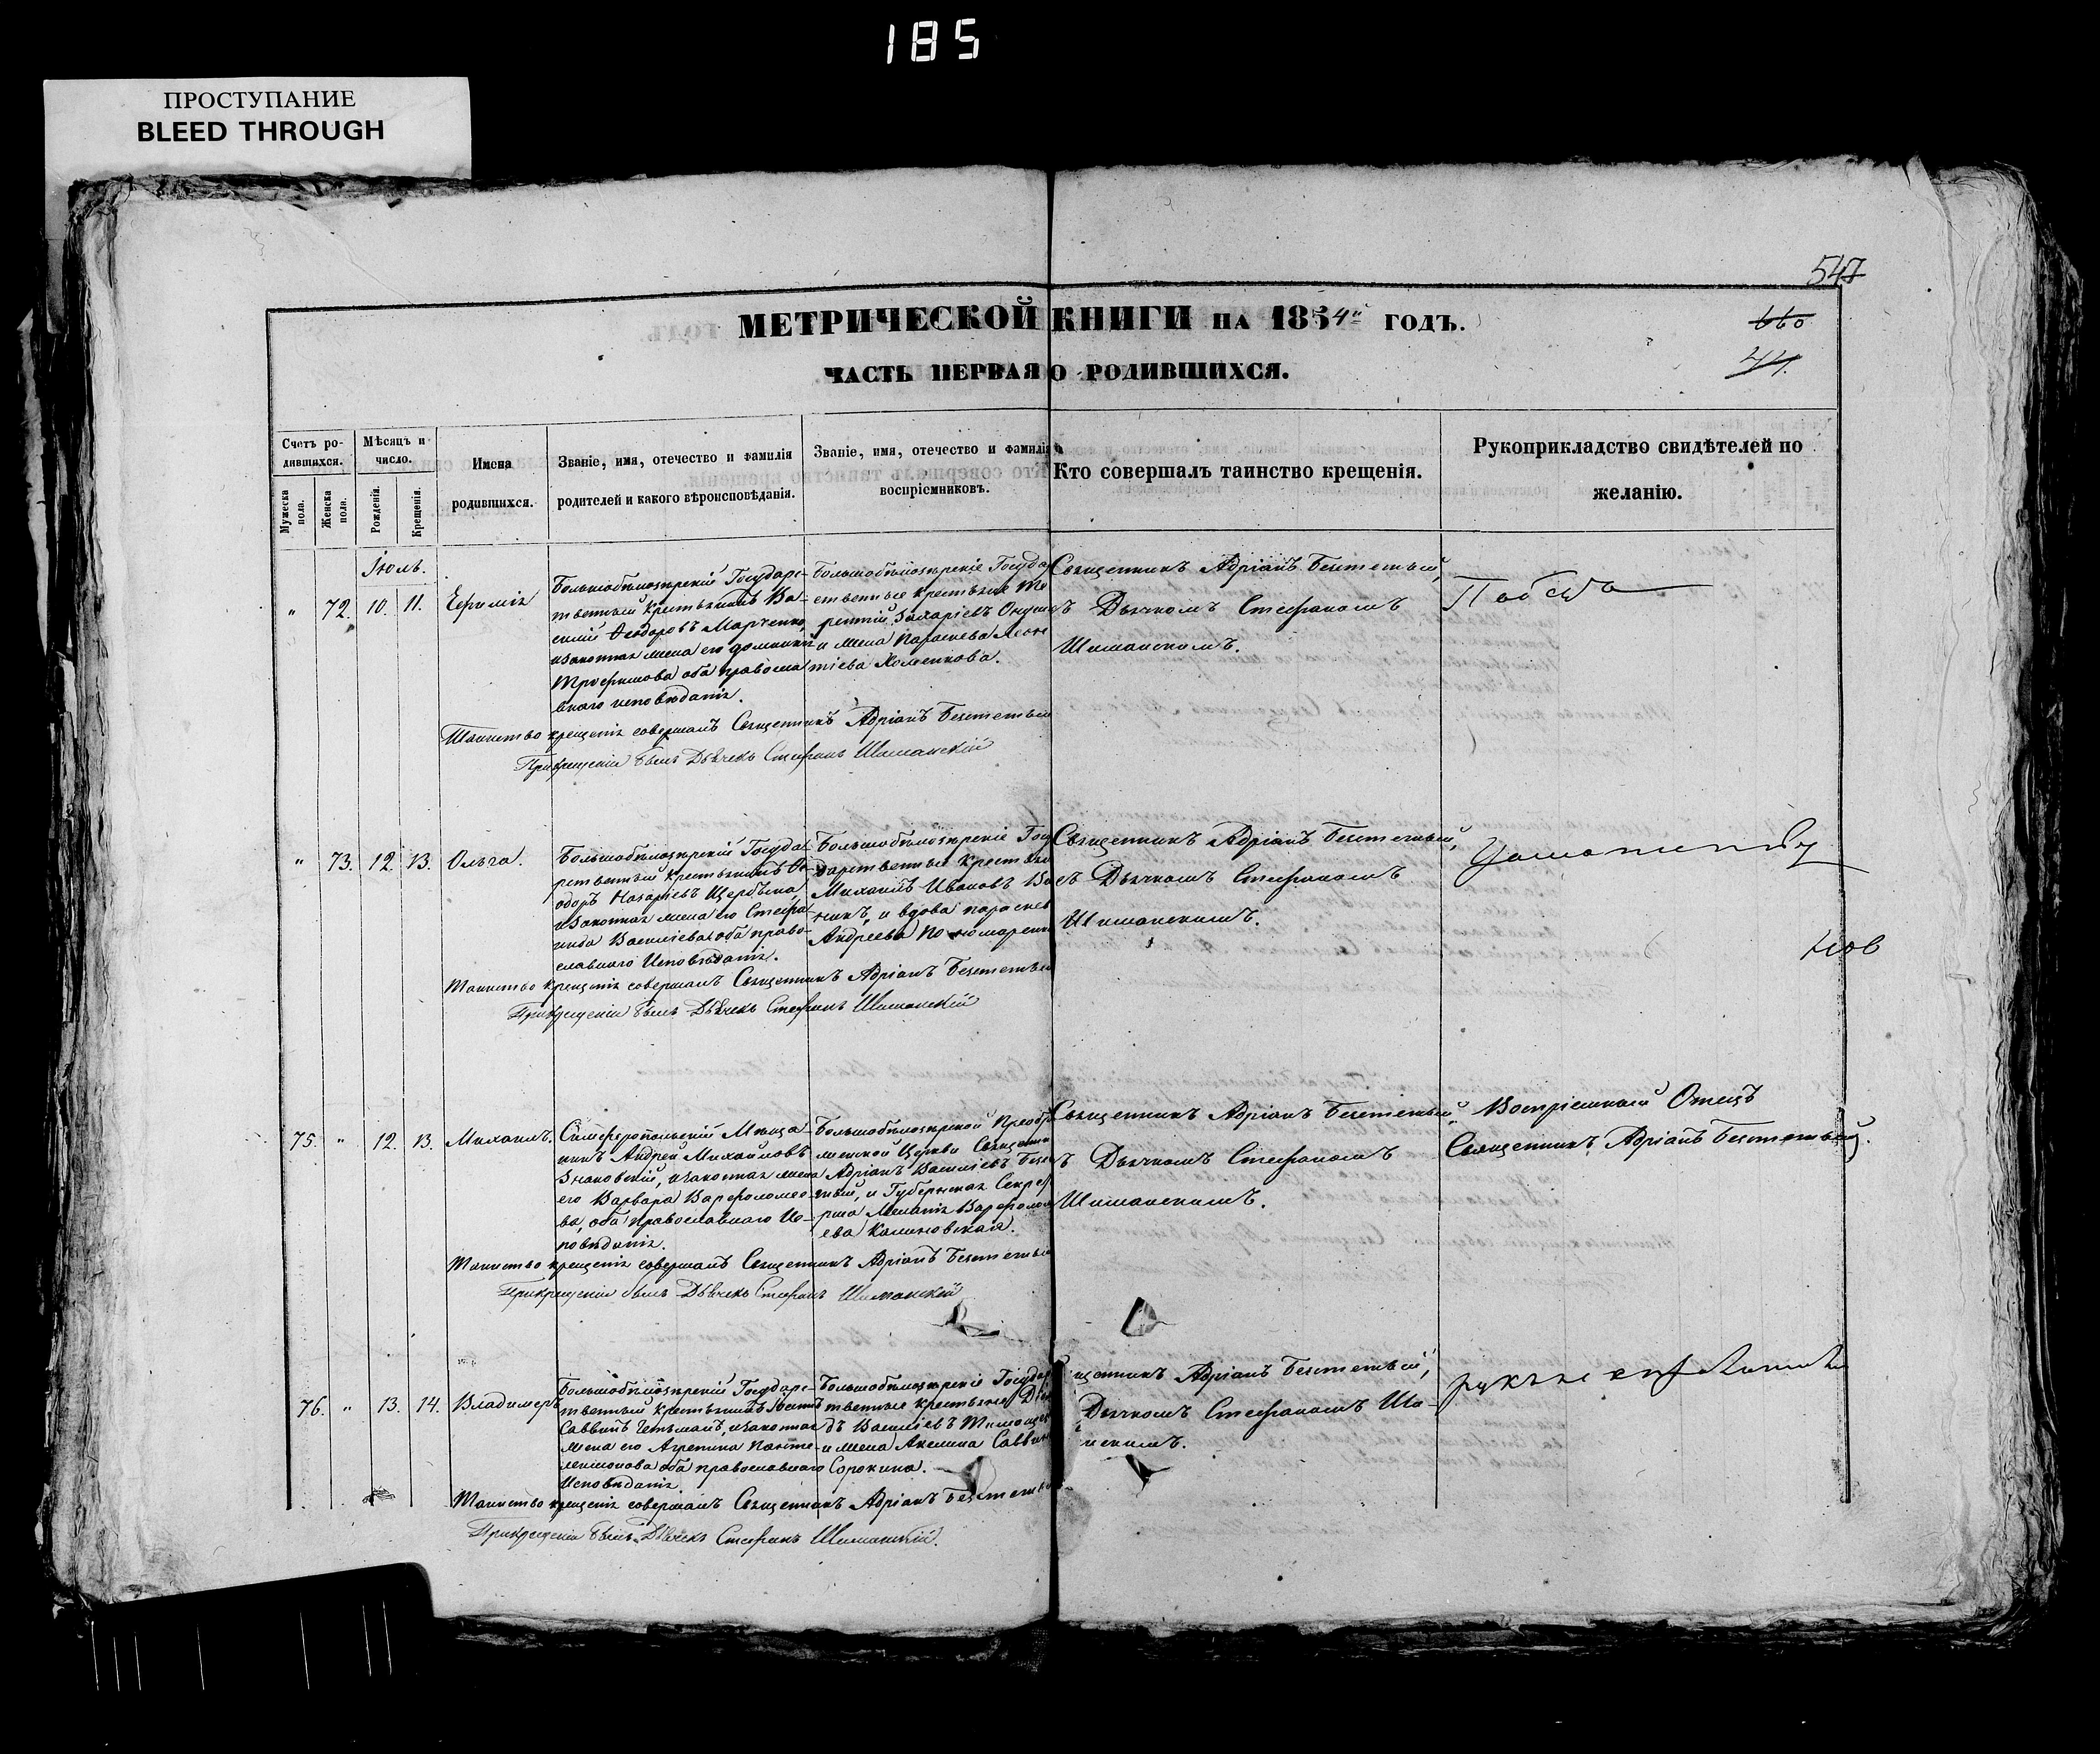 185
ПРОСТУПАНИЕ
BLEED THROUGH
547
660
44.
МЕТРИЧЕСКОЙ КНИГИ НА 1854й ГОДЪ.
ЧАСТЬ ПЕРВАЯ О РОДИВШИХСЯ.
Счетъ родившихся.
Мужеска пола.
Женска пола.
Мѣсяцъ и число.
Рожденія.
Крещенія.
Имена родившихся.
Званіе, имя, отечество и фамилія родителей и какого вѣроисповѣданія.
Званіе, имя, отечество и фамилія воспріемниковъ.
Кто совершалъ таинство крещенія.
Рукоприкладство свидѣтелей по желанію.
Іюль.
" 72. 10. 11. Еѳимія
Большобѣлозѣрскій Государс-
твенный крестьянинъ Ва-
силій Ѳеодоровъ Марченко,
и законная жена его Домникія
Трофимова оба православ
наго исповѣданія.
Большобѣлозѣрскіе Государ
ственные крестьяне
Захаріевъ
и жена Параскева Леон
тіева Хоменкова.
Священникъ Адріанъ Безтетьвый,
съ Дьячкомъ Стефаномъ
Шиманскимъ.
Таинство крещенія совершалъ Священникъ Адріанъ
При крещеніи былъ Дьячекъ Стефанъ Шиманскій
" 73. 12. 13. Ольга.
Большобѣлозѣрскій Госуда-
рственный крестьянинъ Ѳе-
одоръ Назаріевъ Щербина,
и законная жена его Стефа-
нида Василіева оба право-
славнаго Исповѣданія.
Большобѣлозѣрскіе Госу
дарственные крестьяне
Михаилъ Ивановъ
и вдова Параскева
Андреева Пономаренк
Священникъ Адріанъ
съ Дьячкомъ Стефаномъ
Шиманскимъ.
Таинство крещенія совершалъ Священникъ Адріанъ
При крещеніи былъ Дьячекъ Стефанъ Шиманскій
75. " 12. 13. Михаилъ.
Симферопольскій Мѣща-
нинъ Андрей Михайловъ
Знаковскій, и законная жена
его Варвара Варфоломее-
ва, оба православнаго Ис-
повѣданія.
Большобѣлозѣрской Преобра
женской Церкви Священни
Адріанъ Василіевъ
и Губернская Секрета
рша Меланія Варфоломе
ева Калиновская.
Священникъ Адріанъ
съ Дьячкомъ Стефаномъ
Шиманскимъ.
Воспріемный Отецъ
Священникъ Адріанъ
Таинство крещенія совершалъ Священникъ Адріанъ
При крещеніи былъ Дьячекъ Стефанъ Шиманскій
76. " 13. 14. Владимеръ
Большобѣлозѣрскій Государс-
твенный крестьянинъ
Саввинъ Четьманъ, и законная
жена его Агрепина Панте-
леимонова оба православнаго
Исповѣданія.
Большобѣлозѣрскіе Государ
твенные крестьяне
Василіевъ
и жена Акилина Саввина
Сорокина.
Священникъ Адріанъ
Дьячкомъ Стефаномъ Ши-
манскимъ.
Таинство крещенія совершалъ Священникъ Адріанъ
При крещеніи былъ Дьячекъ Стефанъ Шиманскій.